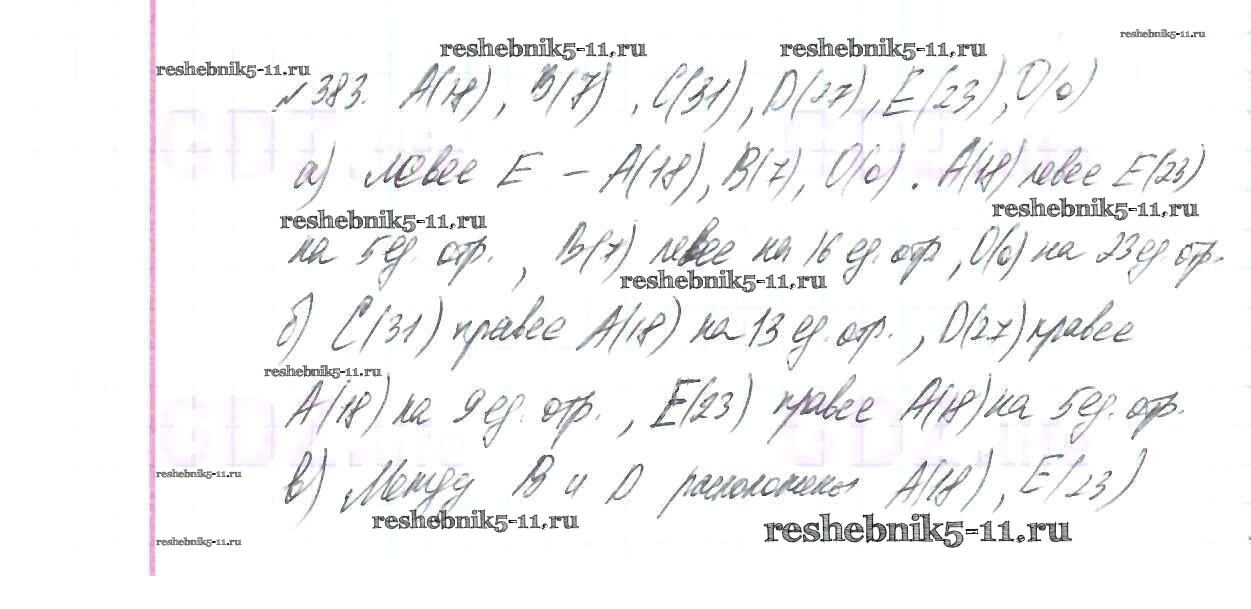 reshebnik5-11.ru
reshebnik5-11.ru
reshebnik5-11.ru
reshebnik5-11.ru
№383. A(18), B(7), C(31), D(27), E(23), O(0)
а) левее E – A(18), B(7), O(0). A(18) левее E(23)
reshebnik5-11.ru
reshebnik5-11.ru
на 5 ед. отр., B(7) левее на 16 ед. отр, O(0) на 23 ед. отр.
reshebnik5-11.ru
б) C(31) правее A(18) на 13 ед. отр., D(27) правее
reshebnik5-11.ru
A(18) на 9 ед. отр., E(23) правее A(18) на 5 ед. отр.
reshebnik5-11.ru
в) Между B и D расположены A(18), E(23)
reshebnik5-11.ru
reshebnik5-11.ru
reshebnik5-11.ru